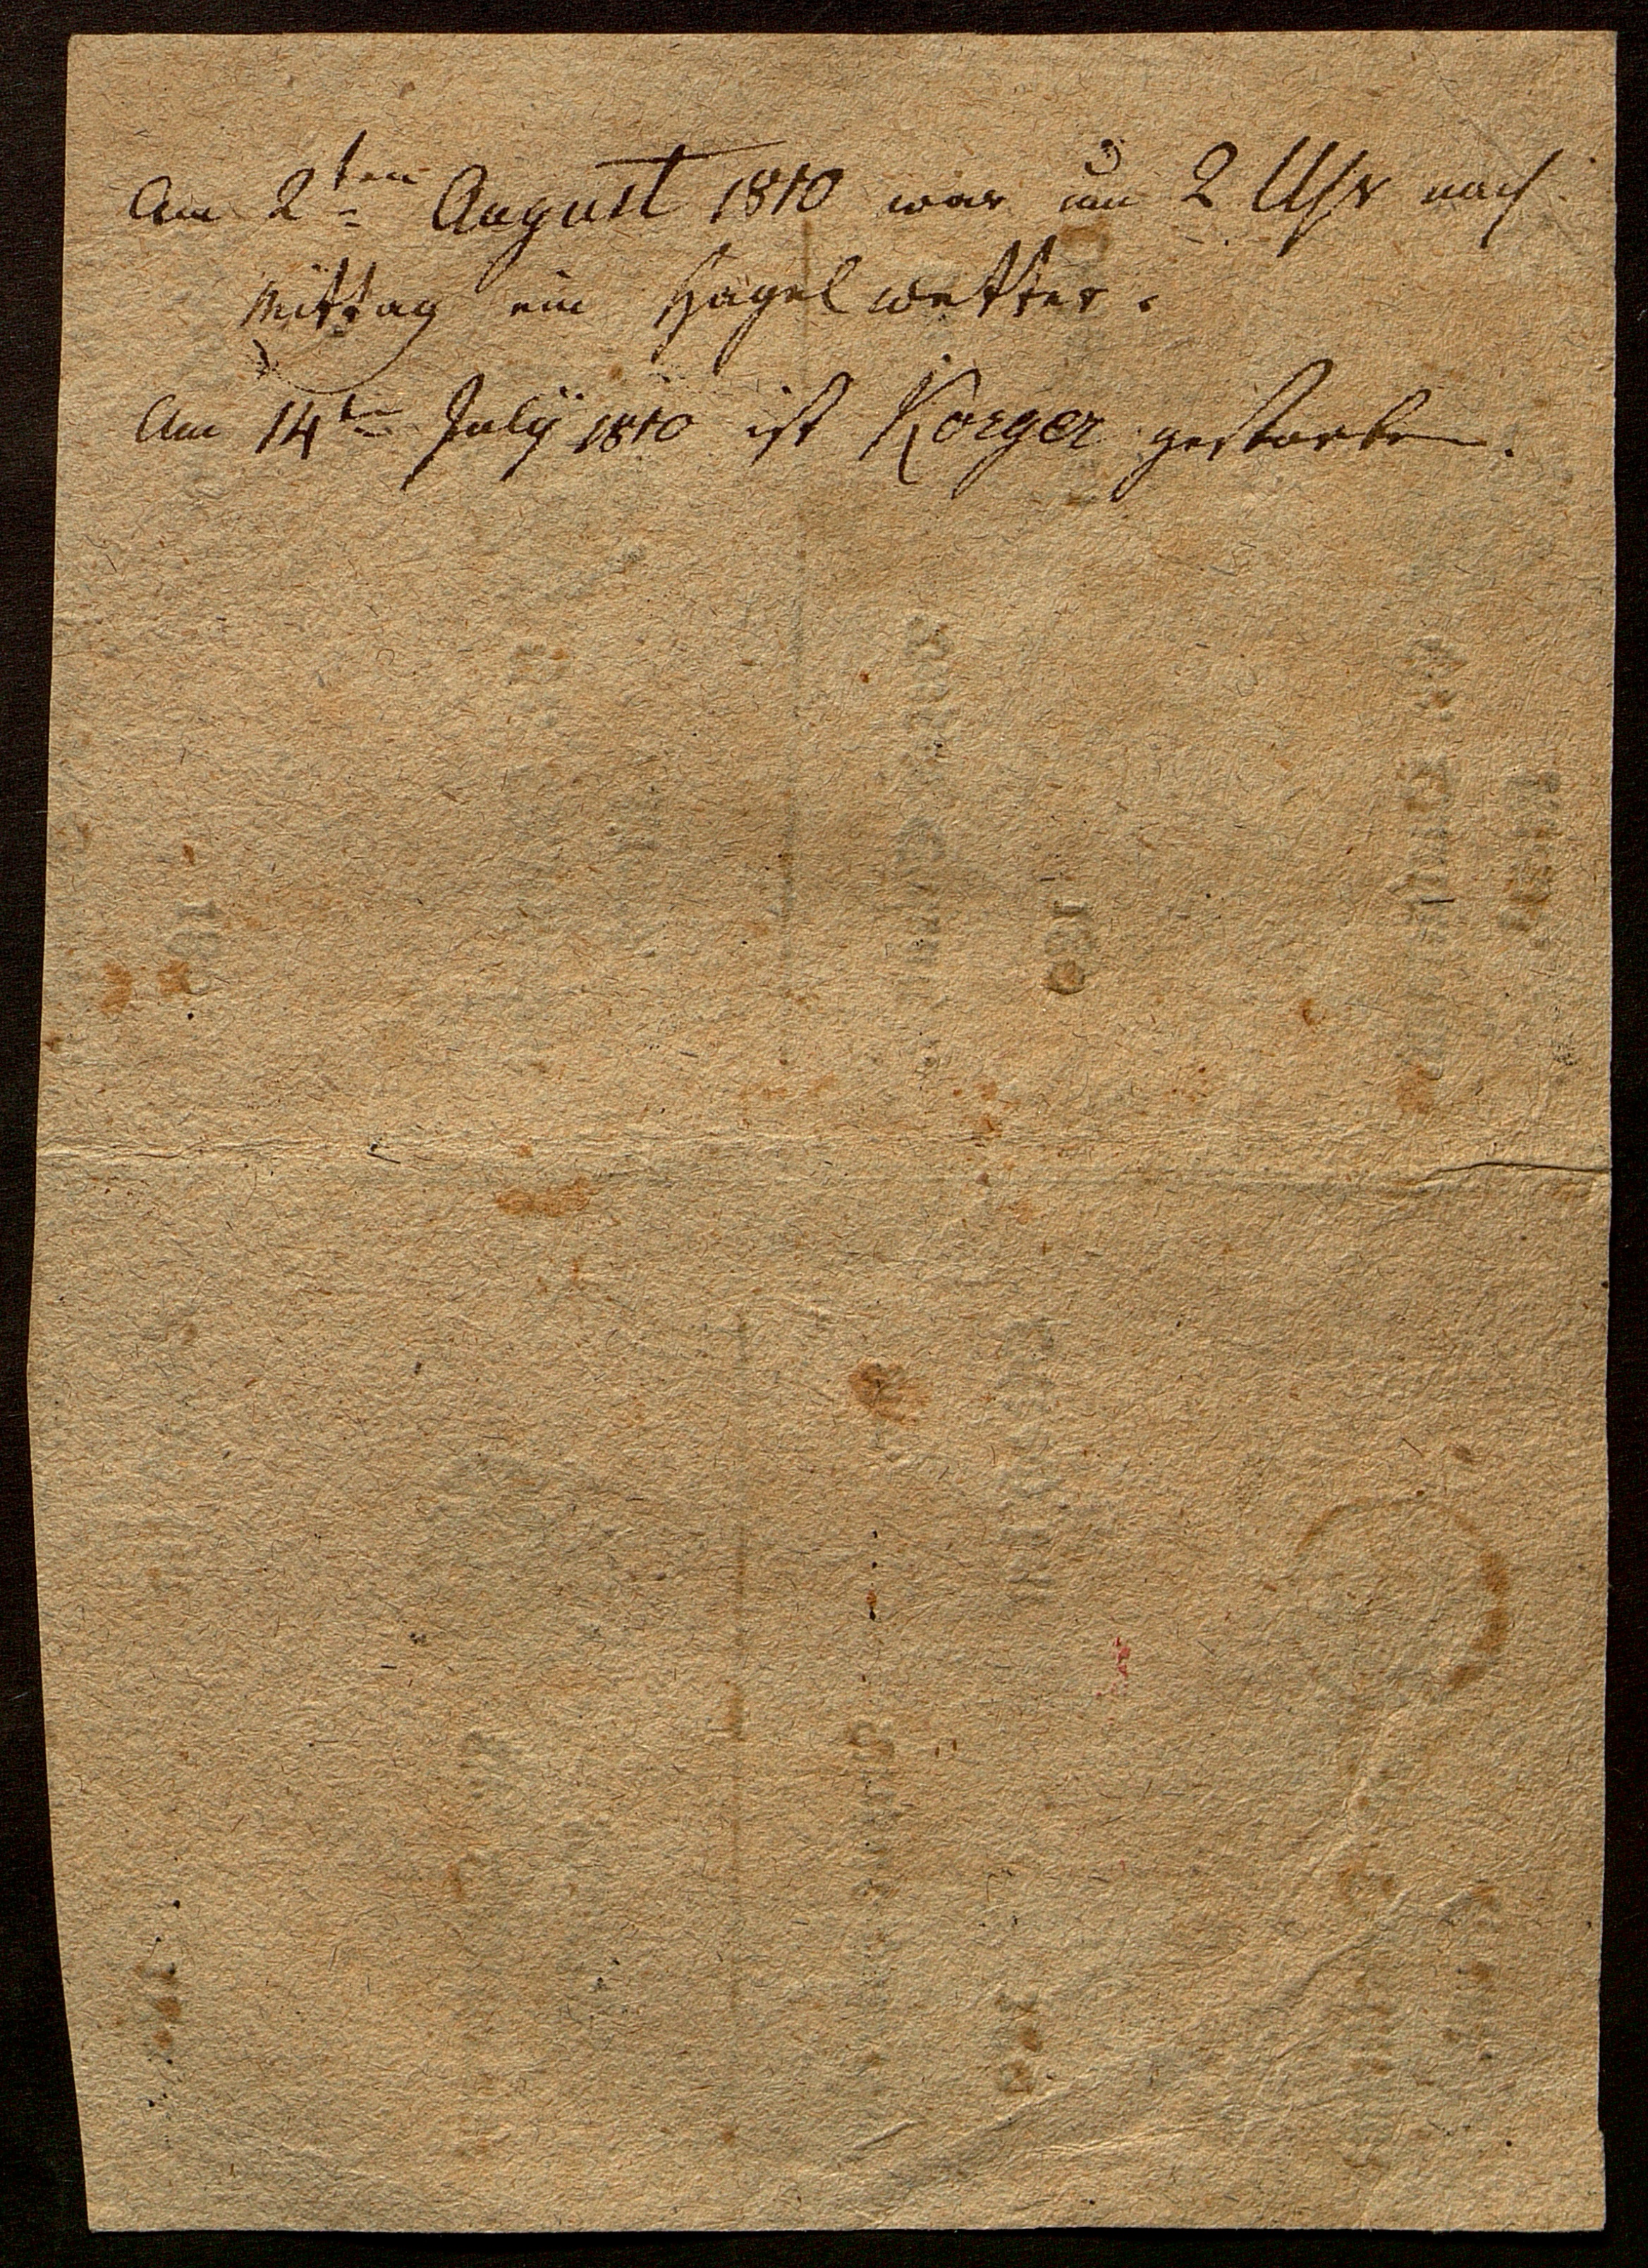 Am 2ten August 1810 war um 2 Uhr nach
Mittag ein Hagelwetter.
Am 14ten July 1810 ist Korger gestorben.